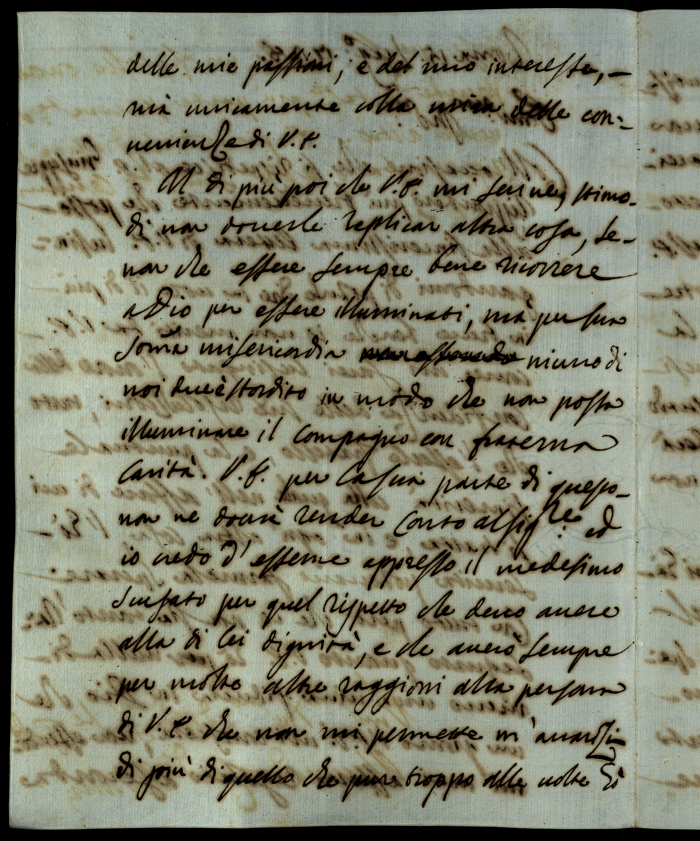 delle mie passioni, e del mio interesse, –
mà unicamente colla unica delle con=
nenienze di V.E.
Al di più poi che V.E. mi scrive, stimo
di non doverle replicar altra cosa, se–
non che essere sempre bene ricorrere
a Dio per essere illuminati, mà per sua
somma misericordia non essendo niuno di
noi due è stordito in modo che non possa
illuminare il compagno con fraterna
carità. V.E. per la sua parte di questo–
non ne dovrà render conto al sig:re ed
io credo d'esserne appresso il medesimo
scusato per quel rispetto che devo avere
alla di lei dignità, e che averò sempre
per molte altre raggioni alla persona
di V.E. che non mi permette m'avanzi
di più di quello che pur troppo alle volte hò